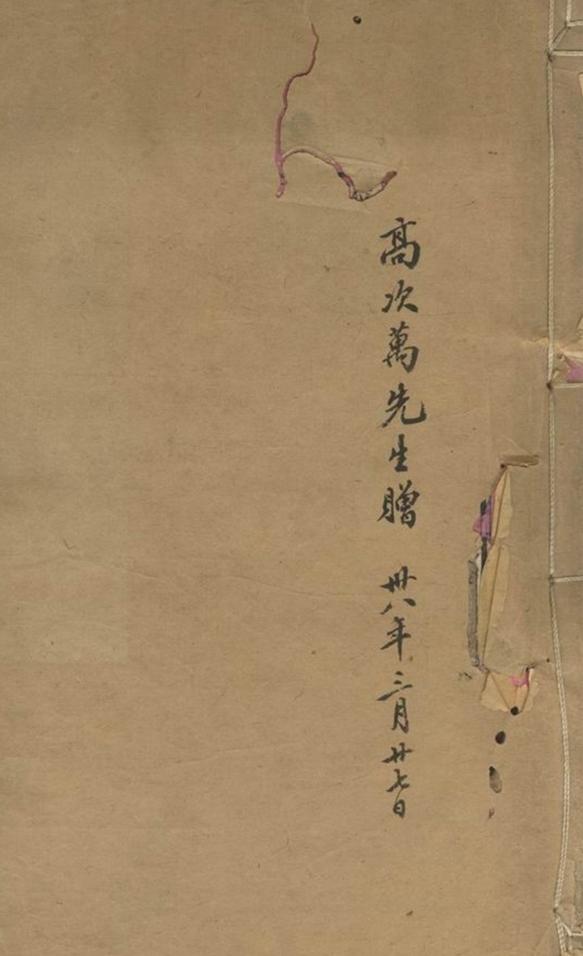 高次萬先生贈 卅八年三月廿七日